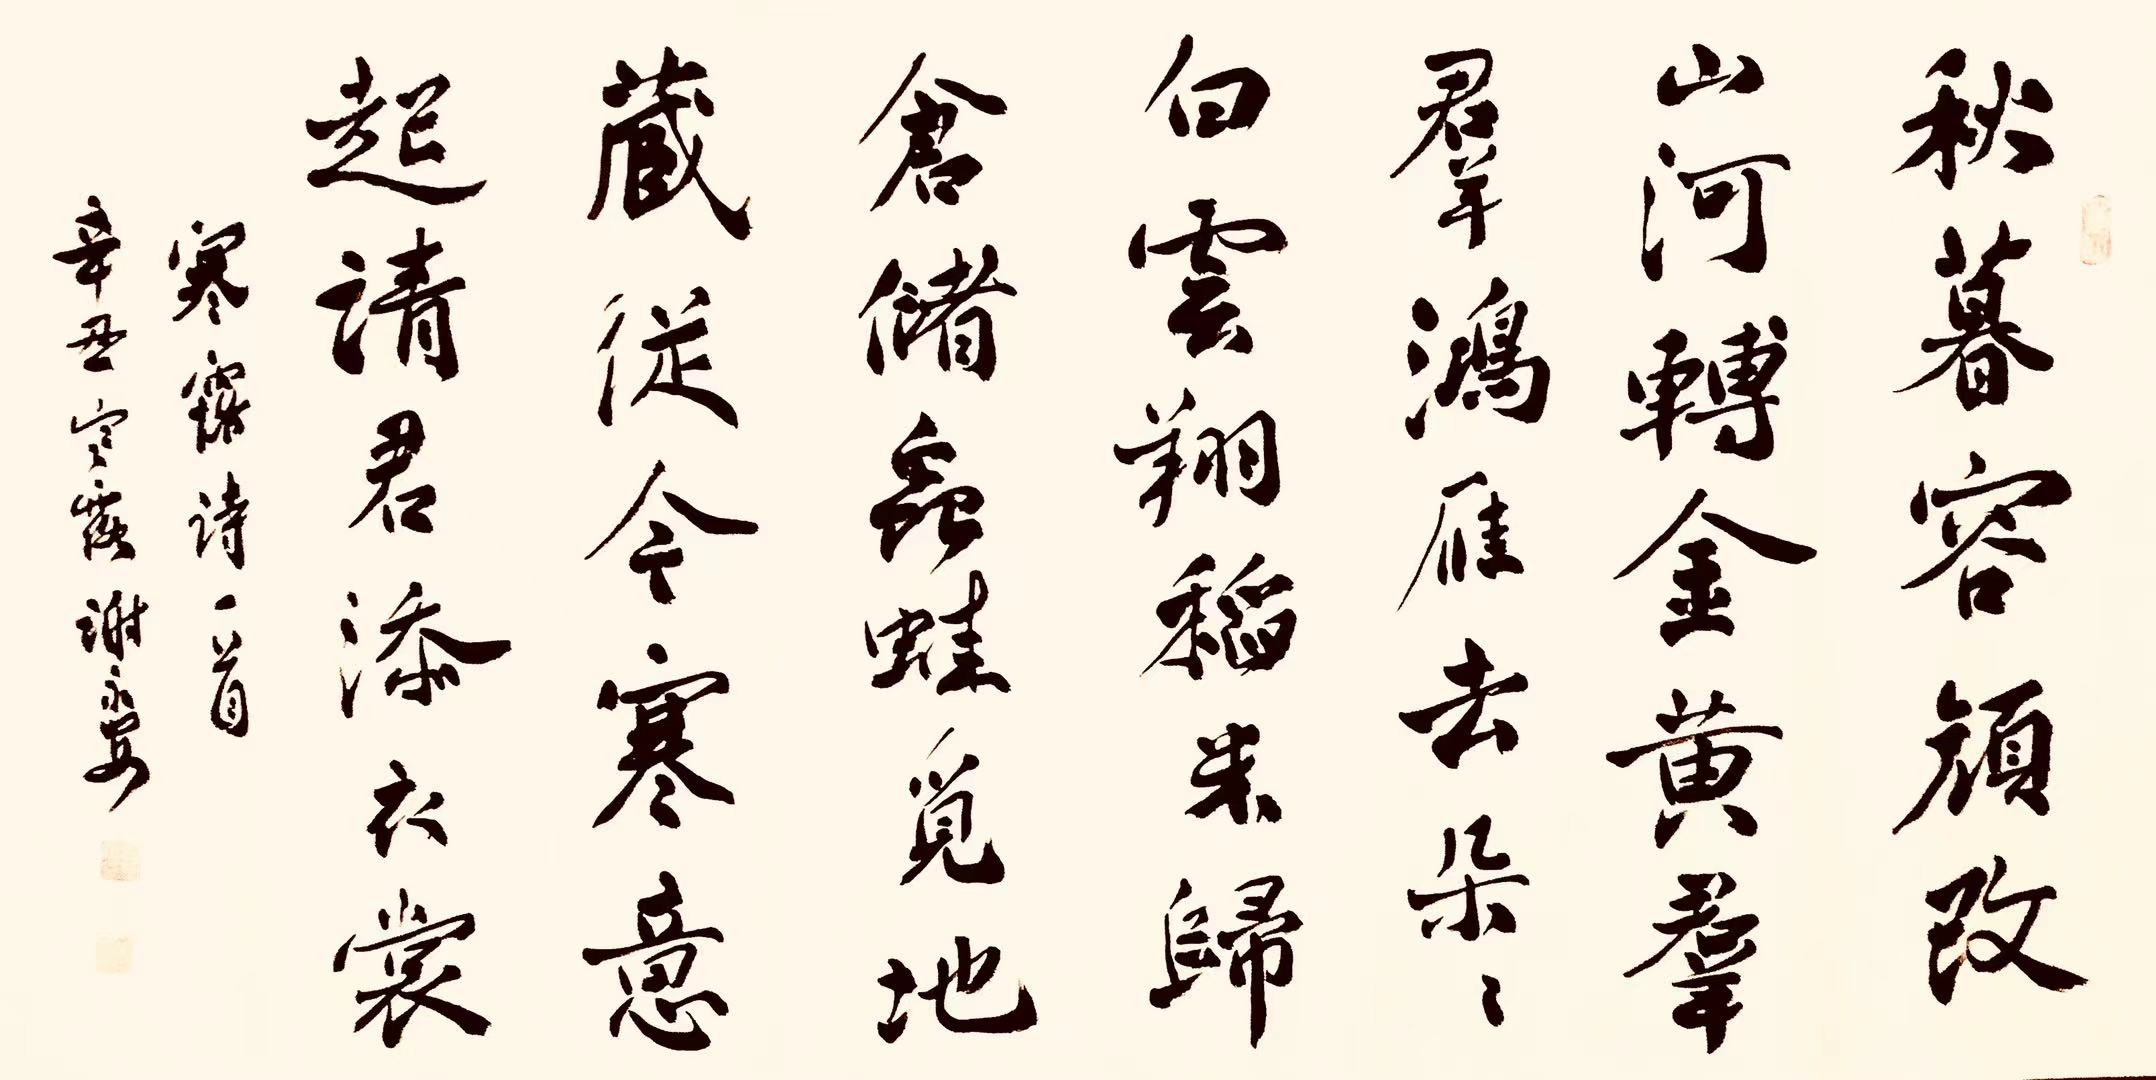 秋暮容顔改
山河轉金黄羣
羣鴻雁去朵〻
白雲翔稻米歸
倉儲蟲蛙覓地
蔵従今寒意
起請君添衣裳
寒露诗一首
辛丑寒露谢永安